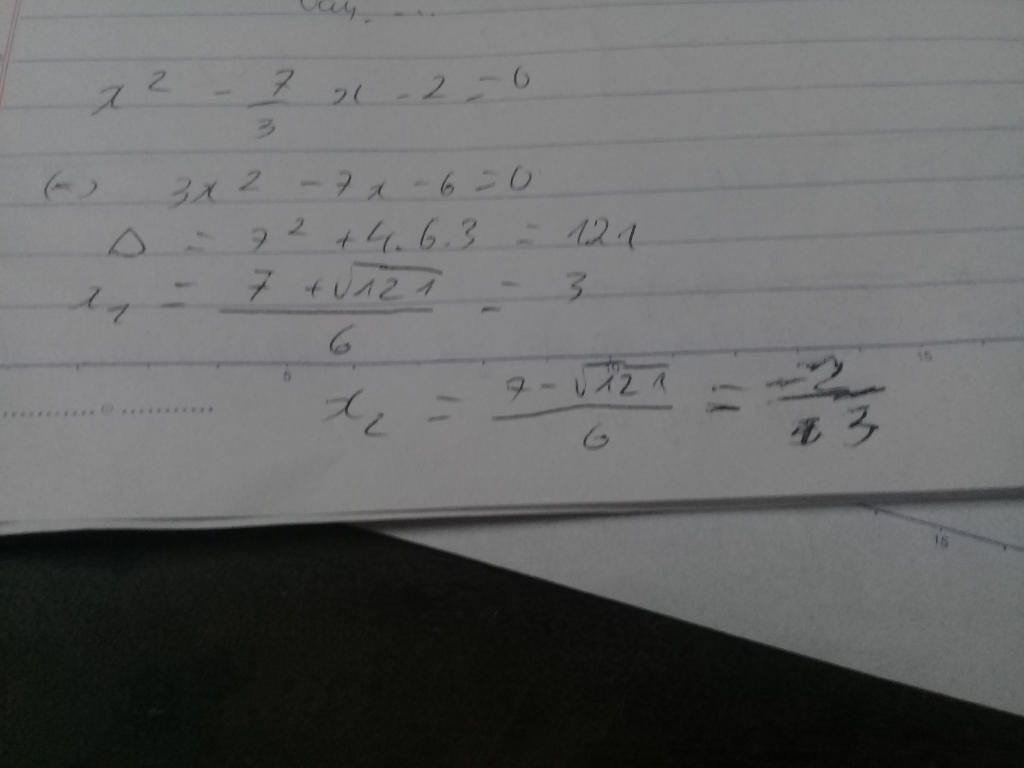 x² - 7/3 x - 2 = 0
(=) 3x² - 7x - 6 = 0
Δ = 7² + 4.6.3 = 121
x₁ = (7 + √121)/6 = 3
5 10 15
x₂ = (7 - √121)/6 = -2/3
15